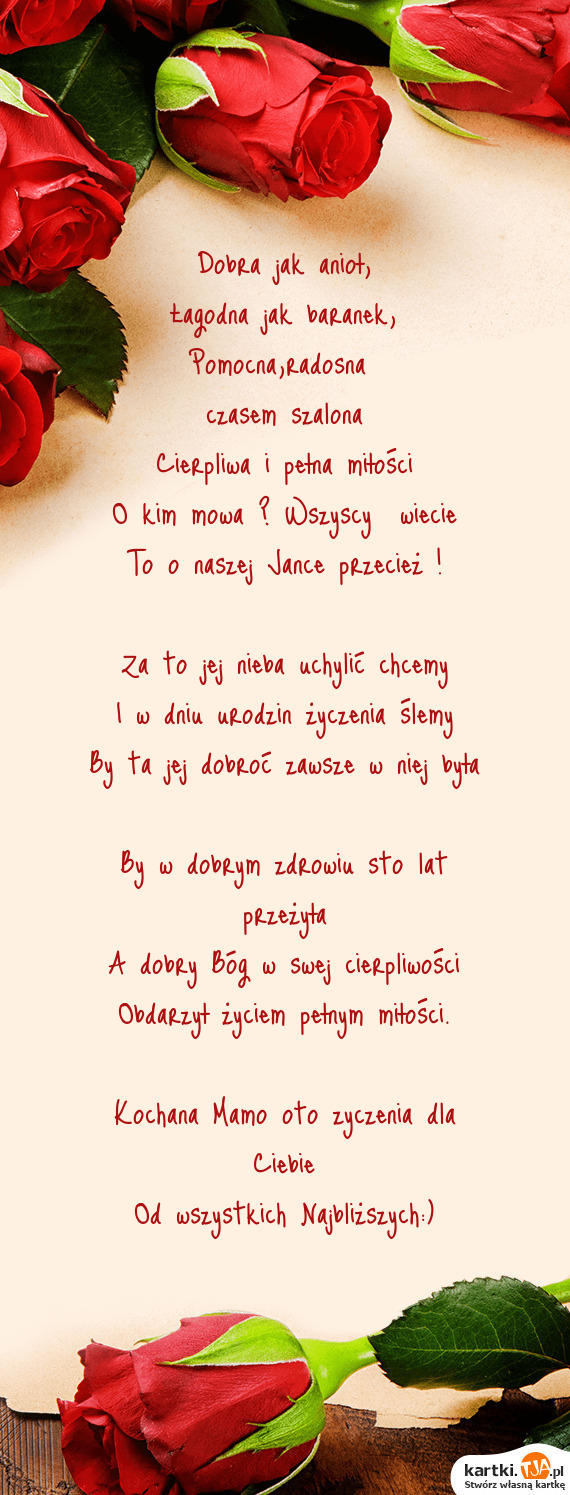 Dobra jak anioł,
Łagodna jak baranek,
Pomocna,radosna
czasem szalona
Cierpliwa i pełna miłości
O kim mowa ? Wszyscy wiecie
To o naszej Jance przecież !
Za to jej nieba uchylić chcemy
I w dniu urodzin życzenia ślemy
By ta jej dobroć zawsze w niej była
By w dobrym zdrowiu sto lat
przeżyła
A dobry Bóg w swej cierpliwości
Obdarzył życiem pełnym miłości.
Kochana Mamo oto zyczenia dla
Ciebie
Od wszystkich Najbliższych:)
kartki.TJA.pl
Stwórz własną kartkę